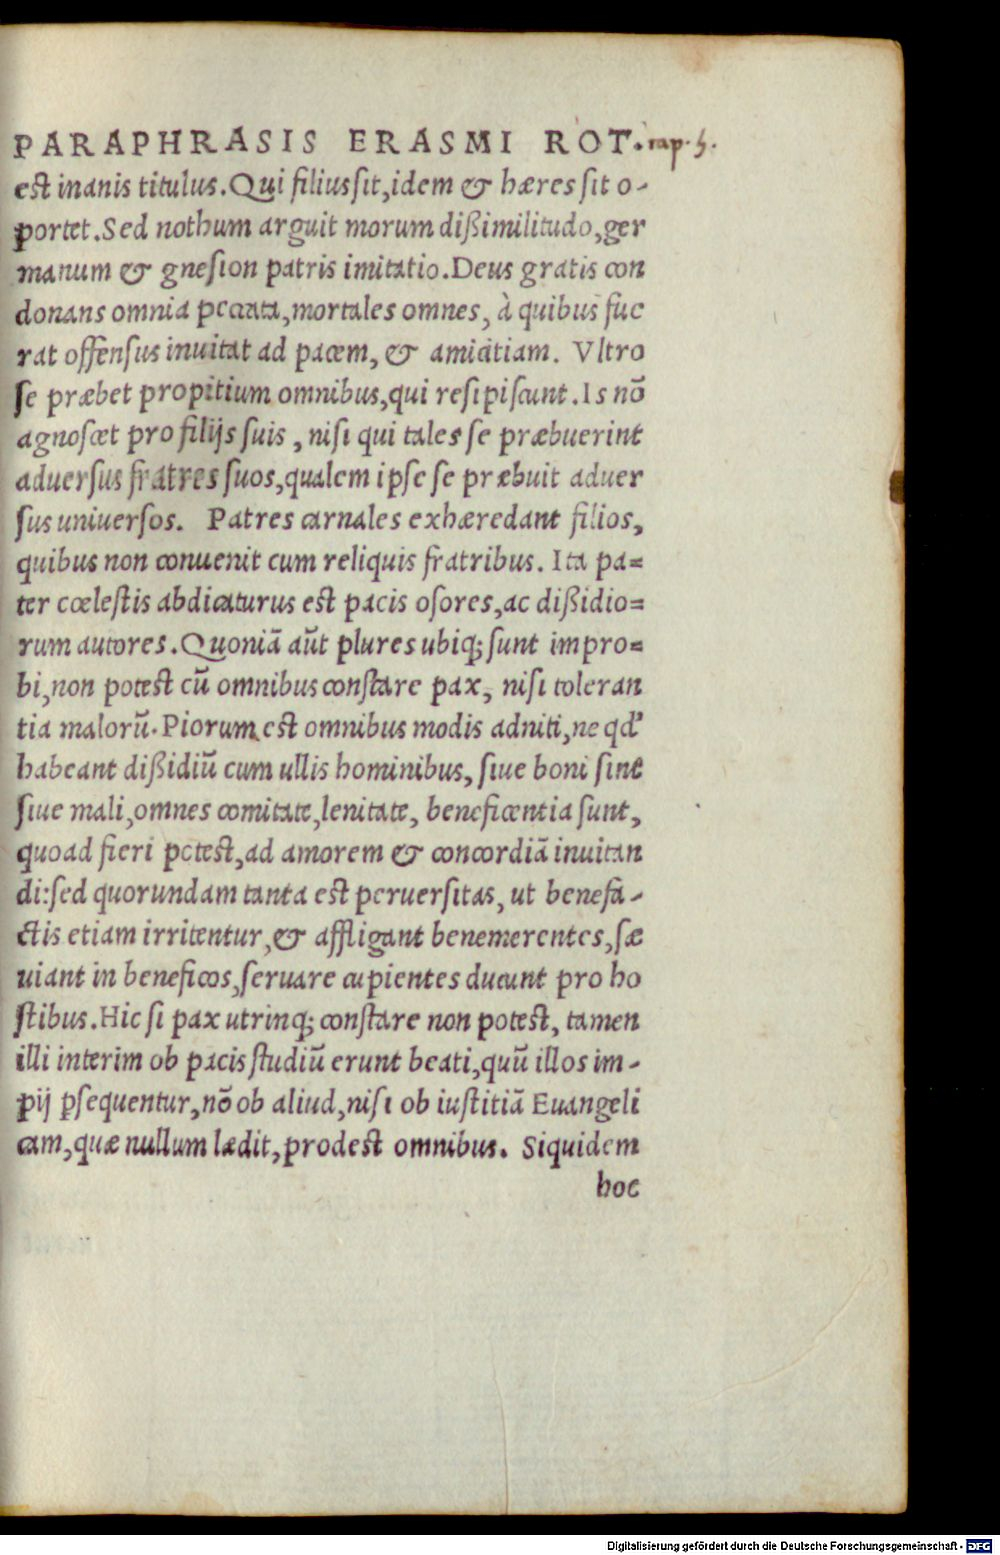 PARAPHRASIS ERASMI ROT. cap. 5.
est inanis titulus. Qui filius sit, idem & hæres sit o-
portet. Sed nothum arguit morum dißimilitudo, ger
manum & gnesion patris imitatio. Deus gratis con
donans omnia peccata, mortales omnes, à quibus fue
rat offensus inuitat ad pacem, & amicitiam. Vltro
se præbet propitium omnibus, qui resipiscunt. Is nõ
agnoscet pro filijs suis, nisi qui tales se præbuerint
aduersus fratres suos, qualem ipse se præbuit aduer
sus uniuersos. Patres carnales exhæredant filios,
quibus non conuenit cum reliquis fratribus. Ita pa=
ter cœlestis abdicaturus est pacis osores, ac dißidio=
rum autores. Quoniã aũt plures ubiq; sunt impro=
bi, non potest cũ omnibus constare pax, nisi toleran
tia malorũ. Piorum est omnibus modis adniti, ne qd'
habeant dißidiũ cum ullis hominibus, siue boni sint
siue mali, omnes comitate, lenitate, beneficentia sunt,
quoad fieri potest, ad amorem & concordiã inuitan
di: sed quorundam tanta est peruersitas, ut benefa-
ctis etiam irritentur, & affligant benemerentes, sæ
uiant in beneficos, seruare cupientes ducunt pro ho
stibus. Hic si pax utrinq; constare non potest, tamen
illi interim ob pacis studiũ erunt beati, quũ illos im-
pij ꝑsequentur, nõ ob aliud, nisi ob iustitiã Euangeli
cam, quæ nullum lædit, prodest omnibus. Siquidem
hoc
Digitalisierung gefördert durch die Deutsche Forschungsgemeinschaft - DFG